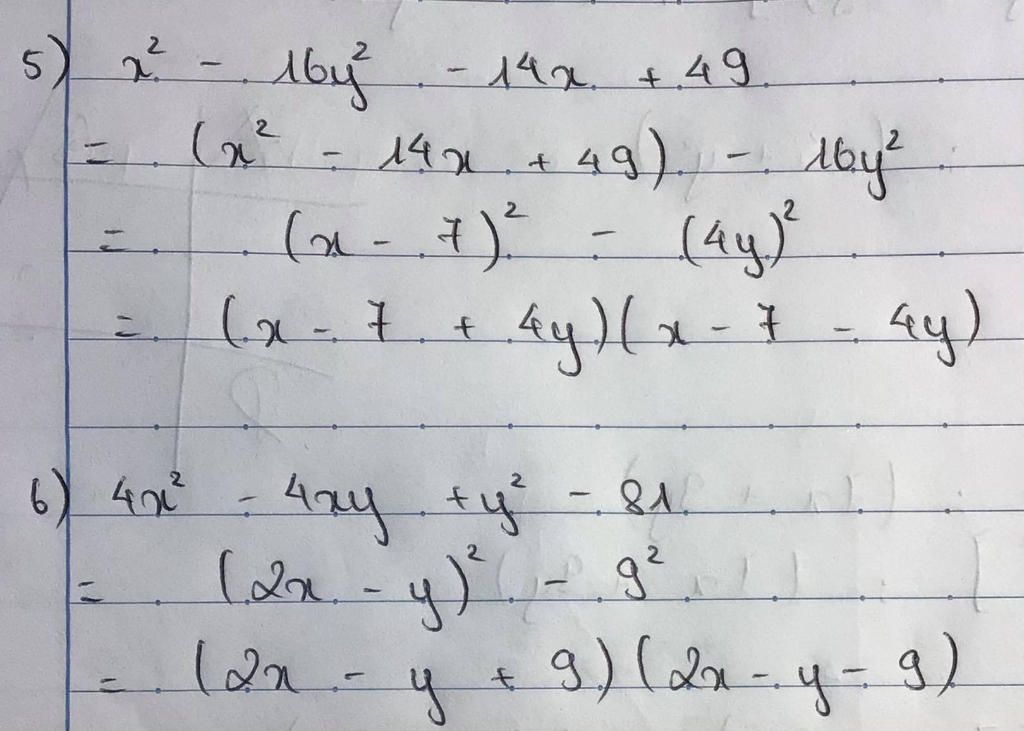 5) x² - 16y² - 14x + 49
= (x² - 14x + 49) - 16y²
= (x - 7)² - (4y)²
= (x - 7 + 4y)(x - 7 - 4y)
6) 4x² - 4xy + y² - 81
= (2x - y)² - 9²
= (2x - y + 9)(2x - y - 9)